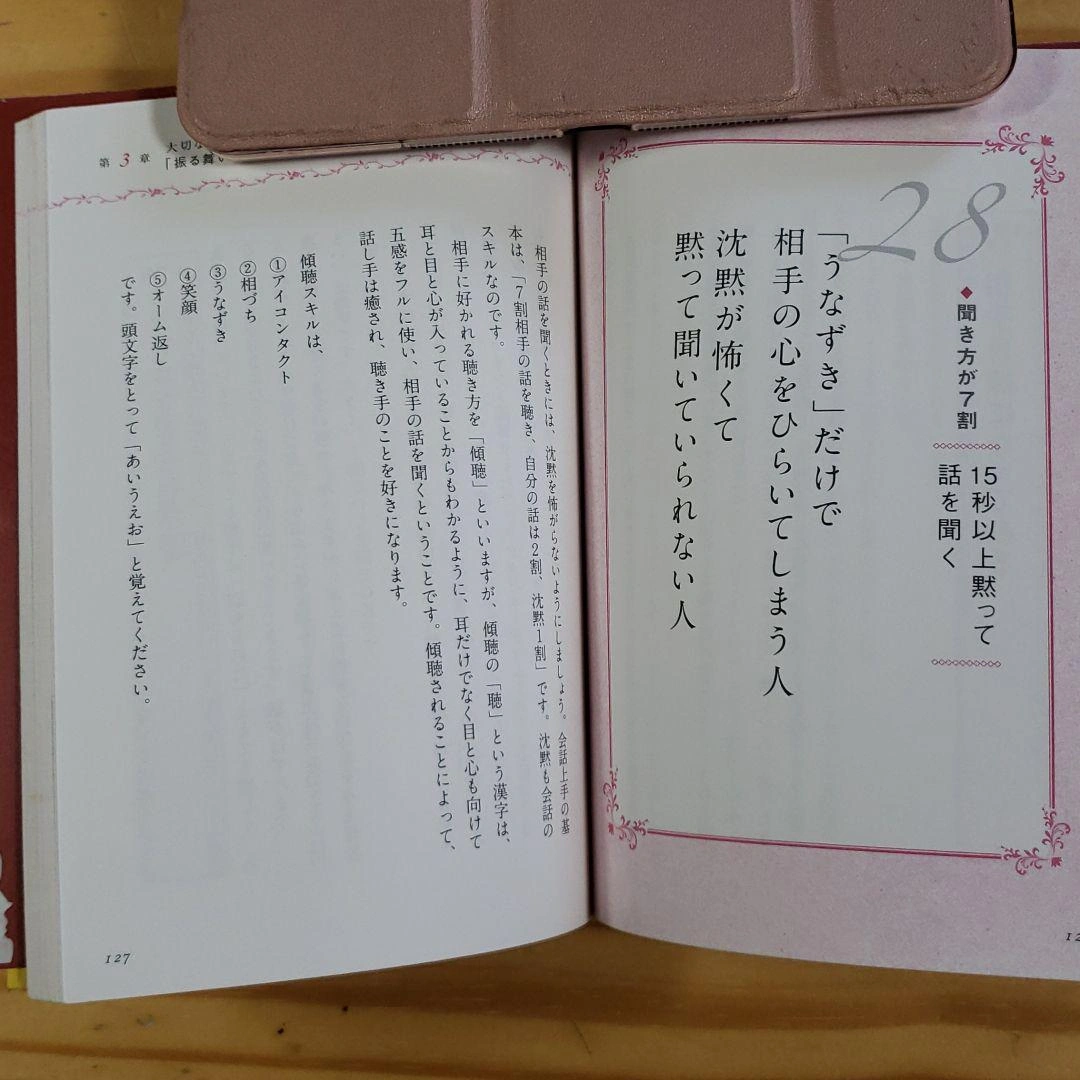 28
◆聞き方が7割
15秒以上黙って
話を聞く
「うなずき」だけで
相手の心をひらいてしまう人
沈黙が怖くて
黙って聞いていられない人
第3章
大切な
「振る舞い
相手の話を聞くときには、沈黙を怖がらないようにしましょう。会話上手の基
本は、「7割相手の話を聴き、自分の話は2割、沈黙1割」です。沈黙も会話の
スキルなのです。
相手に好かれる聴き方を「傾聴」といいますが、傾聴の「聴」という漢字は、
耳と目と心が入っていることからもわかるように、耳だけでなく目と心も向けて
五感をフルに使い、相手の話を聞くということです。傾聴されることによって、
話し手は癒され、聴き手のことを好きになります。
傾聴スキルは、
①アイコンタクト
②相づち
③うなずき
④笑顔
⑤オーム返し
です。頭文字をとって「あいうえお」と覚えてください。
127